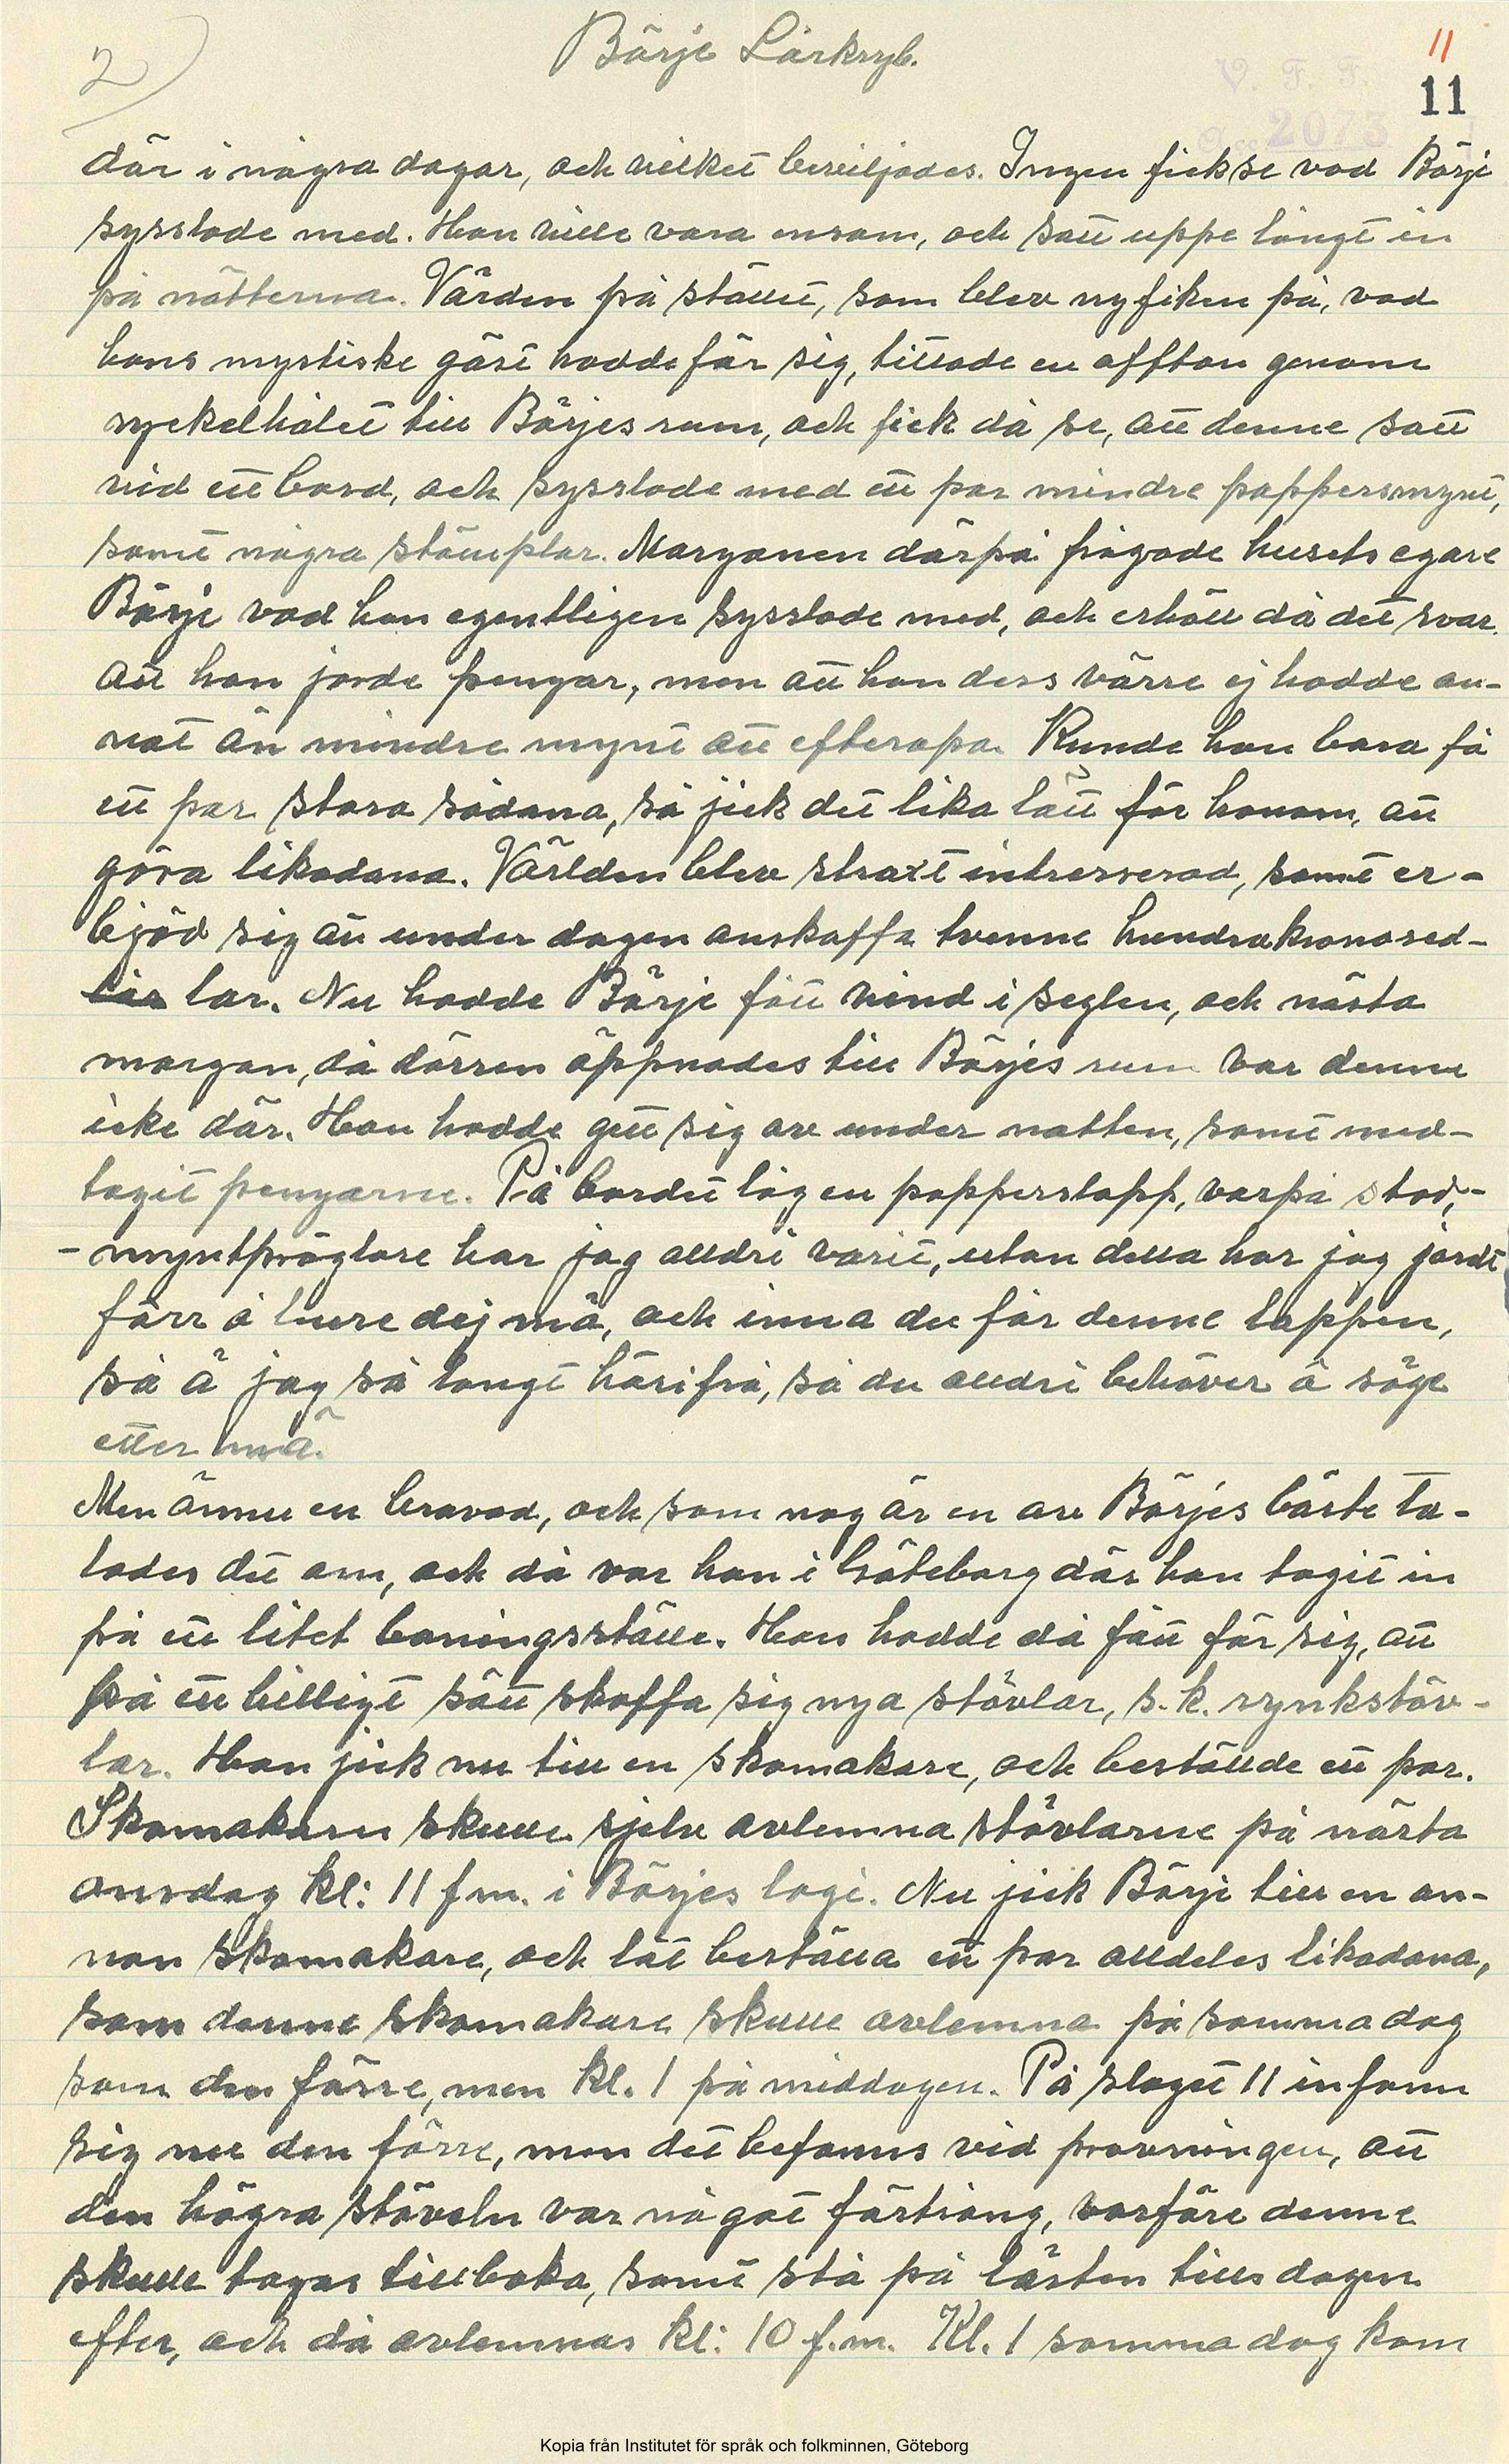 2)
Börje Lärkryb.
11
V. F. F.
2073
11
där i några dagar, och vilket beviljades. Ingen fick se vad Börje
sysslade med. Han ville vara ensam, och satt uppe långt in
på nätterna. Värden på stället, som blev nyfiken på, vad
hans mystiske gäst hadde för sig, tittade en affton genom
nyckelhålet till Börjes rum, och fick då se, att denne satt
vid ett bord, och sysslade med ett par mindre pappersmynt,
samt några stämplar. Morgonen därpå frågade husets egare
Börje vad han egentligen sysslade med, och erhöll då det svar.
att han jorde pengar, men att han dess värre ej hadde an-
nat än mindre mynt att efterapa. Kunde han bara få
ett par stora sådana, så jick det lika lätt för honom, att
göra likadana. Världen blev straxt intresserad, samt er-
bjöd sig att under dagen anskaffa tvenne hundrakronosed-
lar. Nu hadde Börje fått vind i seglen, och nästa
morgon, då dörren öppnades till Börjes rum var denne
icke där. Han hadde gett sig av under natten, samt med-
tagit pengarne. På bordet låg en papperslapp, varpå stod,-
- myntpräglare har jag alldri varit, utan detta har jag jordt
förr å lure dej må, och inna du får denne lappen,
så ä jag så långt härifrå, så du alldri behöver å söge
etter mä.
Men ännu en bravad, och som nog är en av Börjes bäste ta-
lades det om, och då var han i Göteborg där han tagit in
på ett litet boningsställe. Han hadde då fått för sig, att
på ett billigt sätt skaffa sig nya stövlar, s.k. rynkstöv-
lar. Han jick nu till en skomakare, och beställde ett par.
Skomakarn skulle sjelv avlemna stövlarne på nästa
onsdag kl: 11 f.m. i Börjes logi. Nu jick Börje till en an-
nan skomakare, och låt beställa ett par alldeles likadana,
som denne skomakare skulle avlemna på samma dag
som den förre, men kl. 1 på middagen. På slaget 11 infann
sig nu den förre, men det befanns vid provningen, att
den högra stöveln var något förtrång, varföre denne
skulle tagas tillbaka, samt stå på lästen tills dagen
efter, och då avlemnas kl: 10 f.m. Kl. 1 samma dag kom
Kopia från Institutet för språk och folkminnen, Göteborg